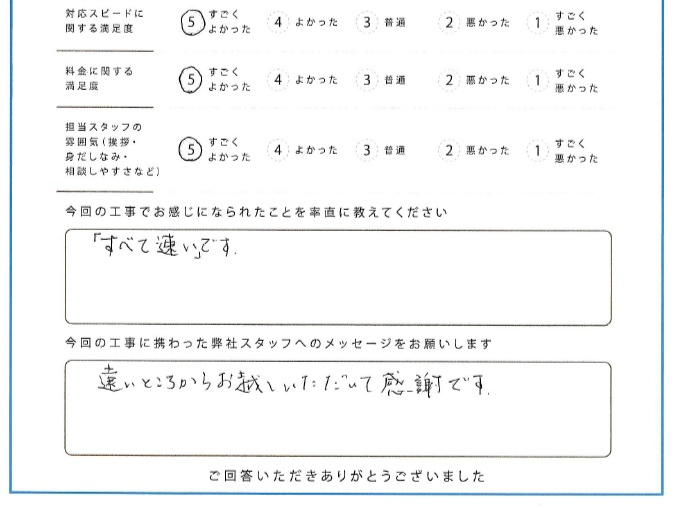 対応スピードに
関する満足度
5 すごくよかった 4 よかった 3 普通 2 悪かった 1 すごく悪かった
料金に関する
満足度
5 すごくよかった 4 よかった 3 普通 2 悪かった 1 すごく悪かった
担当スタッフの
雰囲気(挨拶・
身だしなみ・
相談しやすさなど)
5 すごくよかった 4 よかった 3 普通 2 悪かった 1 すごく悪かった
今回の工事でお感じになられたことを率直に教えてください
「すべて速い」です.
今回の工事に携わった弊社スタッフへのメッセージをお願いします
遠いところからお越しいただいて感謝です.
ご回答いただきありがとうございました